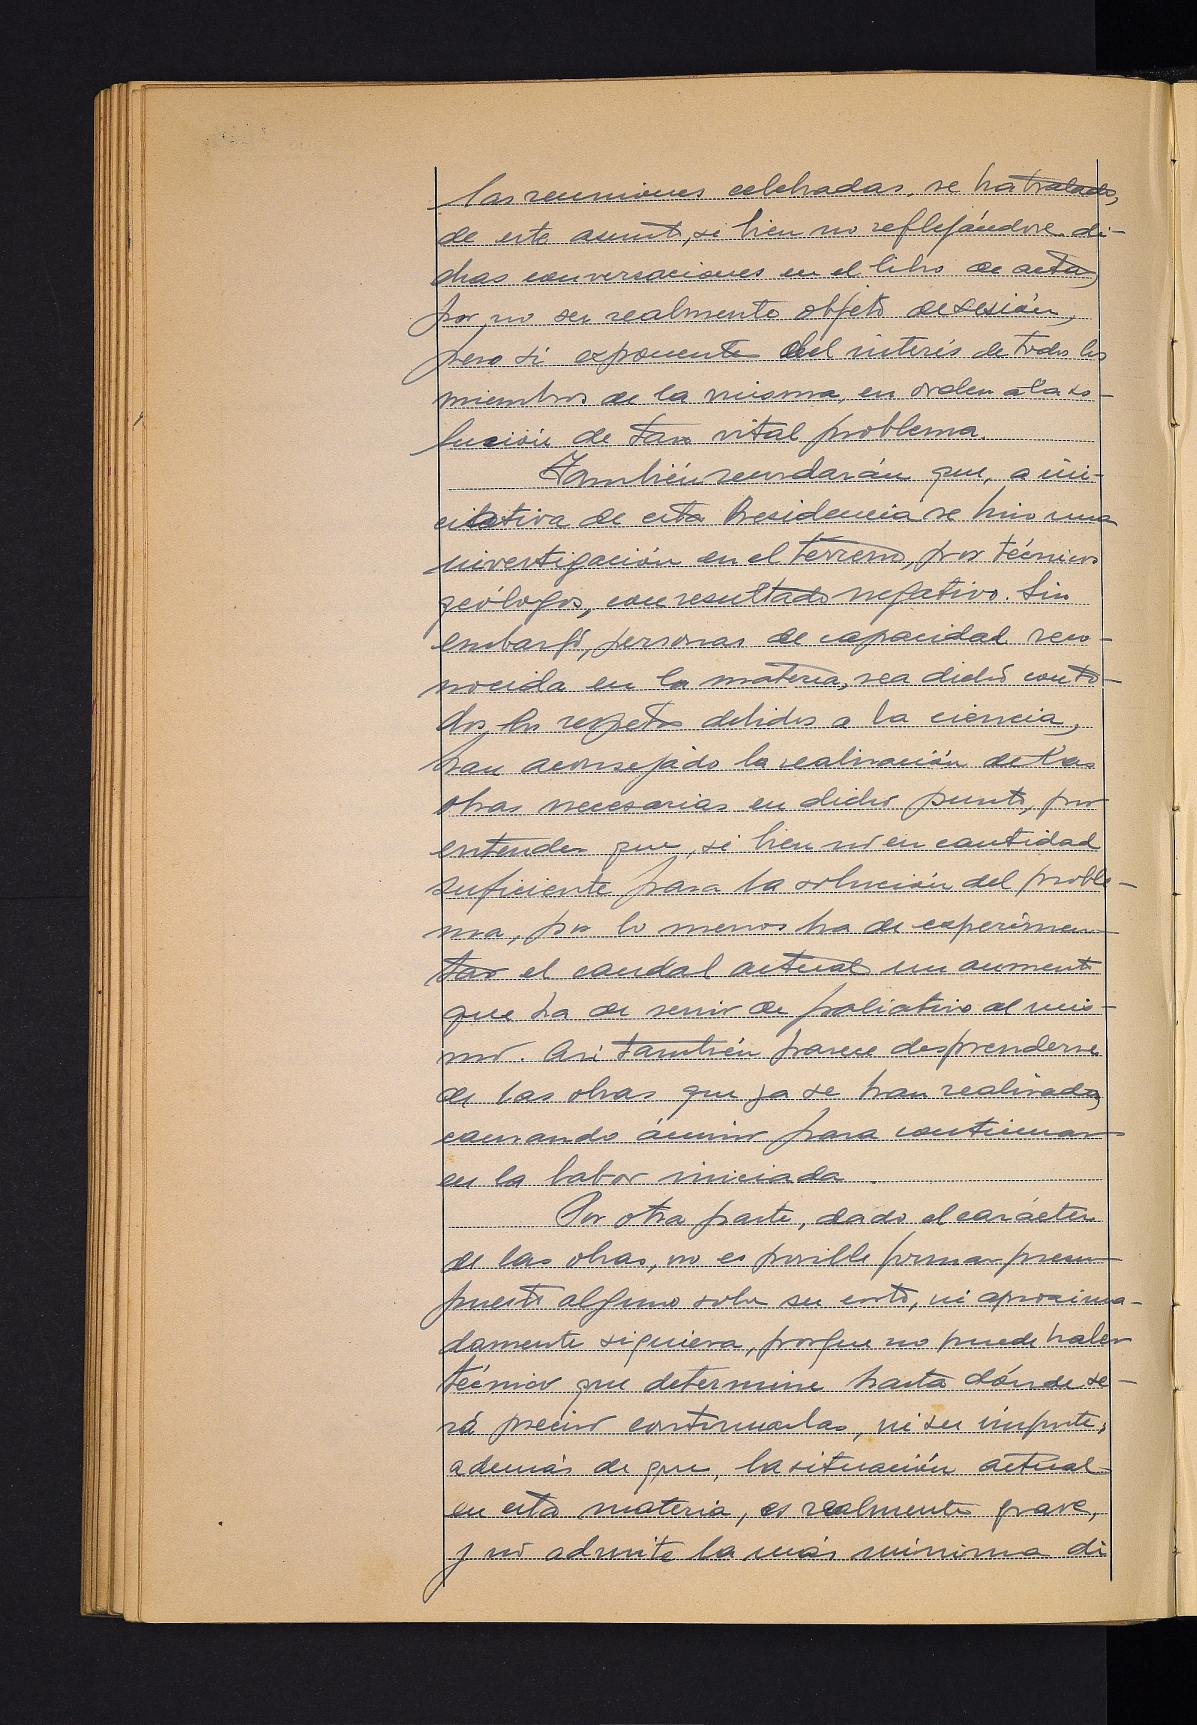 las reuniones celebradas, se ha tratado,
de este asunto, si bien no reflejándose di-
chas conversaciones en el libro de actas,
por no ser realmente objeto de sesión,
pero si exponente del interés de todos los
miembros de la misma, en orden a la so-
lución de tan vital problema.
También recordarán que, a ini-
ciativa de esta Presidencia se hizo una
investigación en el terreno, por técnicos
geólogos, con resultado negativo. Sin
embargo, personas de capacidad reco-
nocida en la materia, sea dicho con to-
dos los respetos debidos a la ciencia,
han aconsejado la realización de las
obras necesarias en dicho punto, por
entender que, si bien no en cantidad
suficiente para la solución del proble-
ma, por lo menos ha de experimen-
tar el caudal actual un aumento
que ha de servir de paliativo al mis-
mo. Asi también parece desprenderse
de las obras que ya se han realizado,
causando ánimo para continuar
en la labor iniciada.
Por otra parte, dado el carácter
de las obras, no es posible formar presu-
puesto alguno sobre su costo, ni aproxima-
damente siquiera, porque no puede haber
técnico que determine hasta dónde se-
rá preciso continuarlas, ni su importe,
además de que, la situación actual
en esta materia, es realmente grave,
y no admite la más mínima di